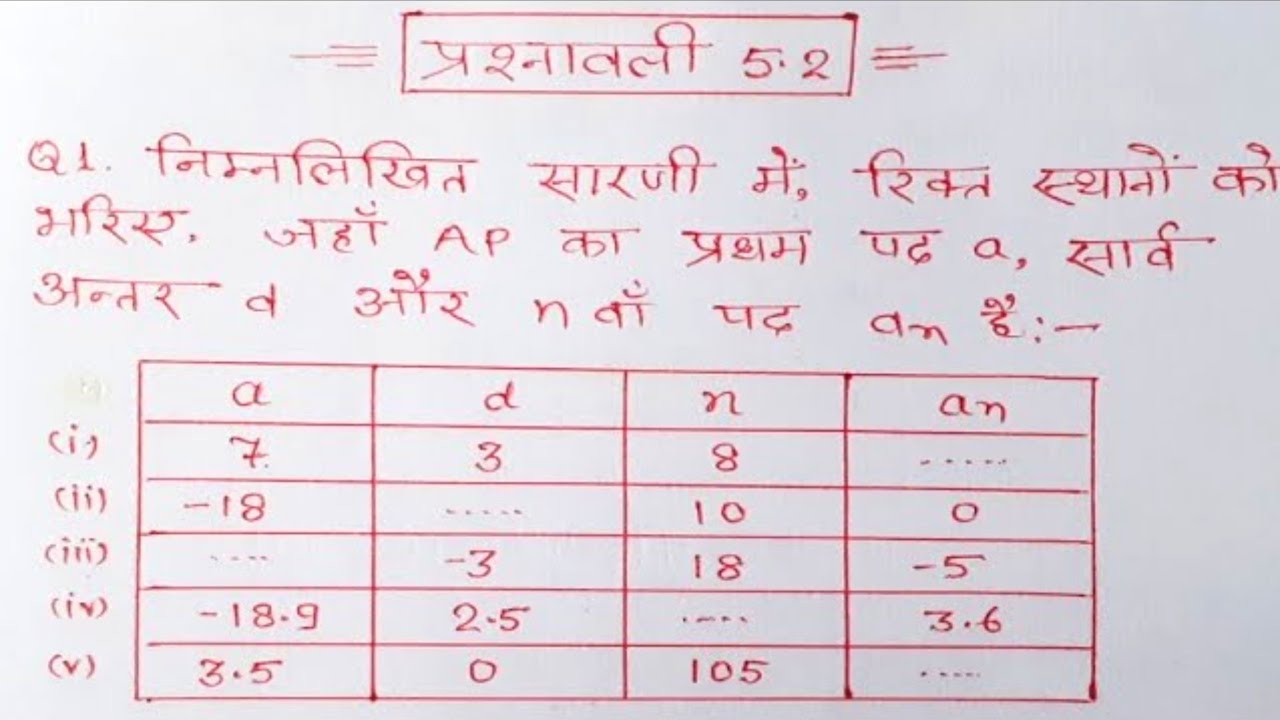 प्रश्नावली 5.2
Q1. निम्नलिखित सारणी में, रिक्त स्थानों को
भरिए, जहाँ AP का प्रथम पद a, सार्व
अन्तर d और n वाँ पद an है:-
a d n an
(i) 7 3 8 .....
(ii) -18 ..... 10 0
(iii) .... -3 18 -5
(iv) -18.9 2.5 ..... 3.6
(v) 3.5 0 105 .....